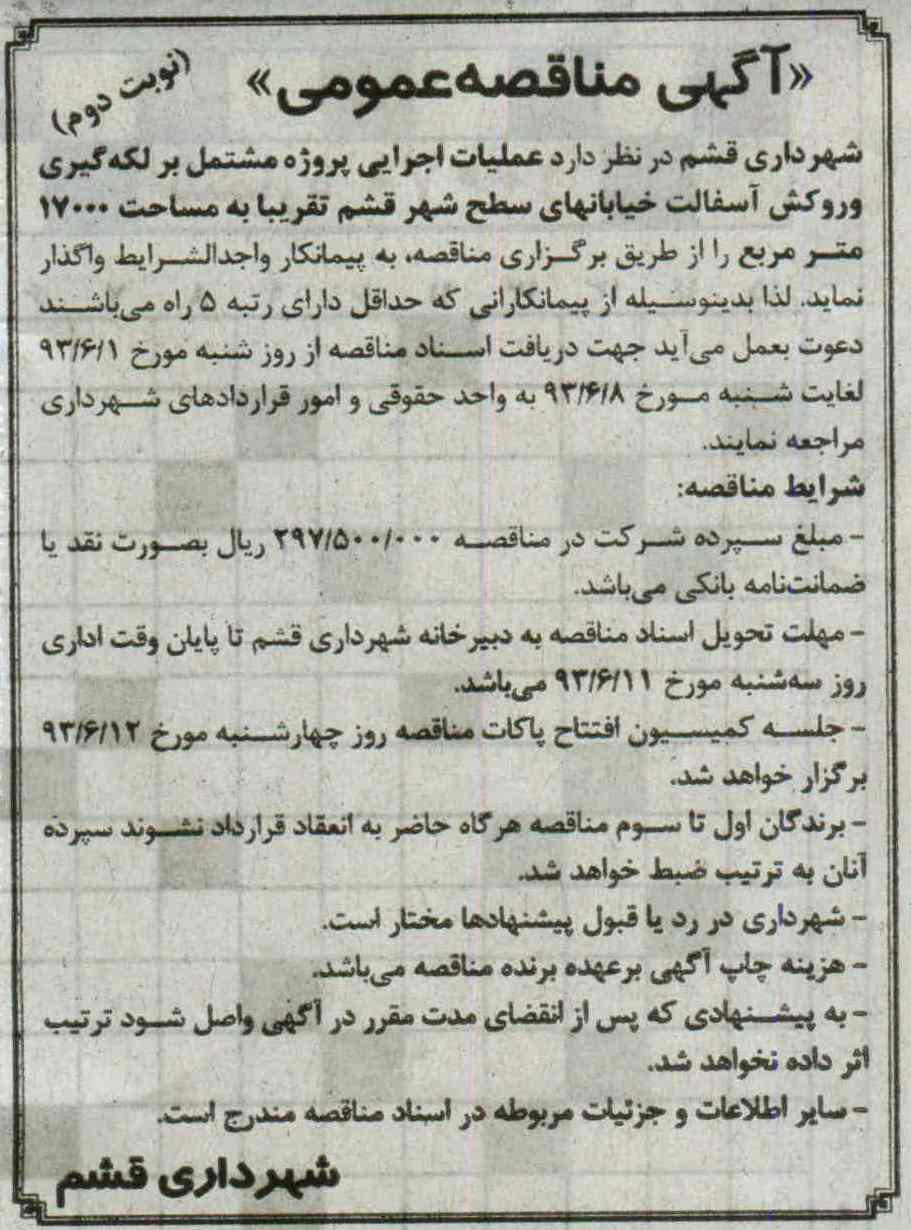 «آگهی مناقصه‌عمومی»
(نوبت دوم)
شهرداری قشم در نظر دارد عملیات اجرایی پروژه مشتمل بر لکه‌گیری
وروکش آسفالت خیابانهای سطح شهر قشم تقریبا به مساحت ۱۷۰۰۰
متر مربع را از طریق برگزاری مناقصه، به پیمانکار واجدالشرایط واگذار
نماید. لذا بدینوسیله از پیمانکارانی که حداقل دارای رتبه ۵ راه می‌باشند
دعوت بعمل می‌آید جهت دریافت اسناد مناقصه از روز شنبه مورخ ۹۳/۶/۱
لغایت شنبه مورخ ۹۳/۶/۸ به واحد حقوقی و امور قراردادهای شهرداری
مراجعه نمایند.
شرایط مناقصه:
- مبلغ سپرده شرکت در مناقصه ۲۹۷/۵۰۰/۰۰۰ ریال بصورت نقد یا
ضمانت‌نامه بانکی می‌باشد.
- مهلت تحویل اسناد مناقصه به دبیرخانه شهرداری قشم تا پایان وقت اداری
روز سه‌شنبه مورخ ۹۳/۶/۱۱ می‌باشد.
- جلسه کمیسیون افتتاح پاکات مناقصه روز چهارشنبه مورخ ۹۳/۶/۱۲
برگزار خواهد شد.
- برندگان اول تا سوم مناقصه هرگاه حاضر به انعقاد قرارداد نشوند سپرده
آنان به ترتیب ضبط خواهد شد.
- شهرداری در رد یا قبول پیشنهادها مختار است.
- هزینه چاپ آگهی برعهده برنده مناقصه می‌باشد.
- به پیشنهادی که پس از انقضای مدت مقرر در آگهی واصل شود ترتیب
اثر داده نخواهد شد.
- سایر اطلاعات و جزئیات مربوطه در اسناد مناقصه مندرج است.
شهرداری قشم